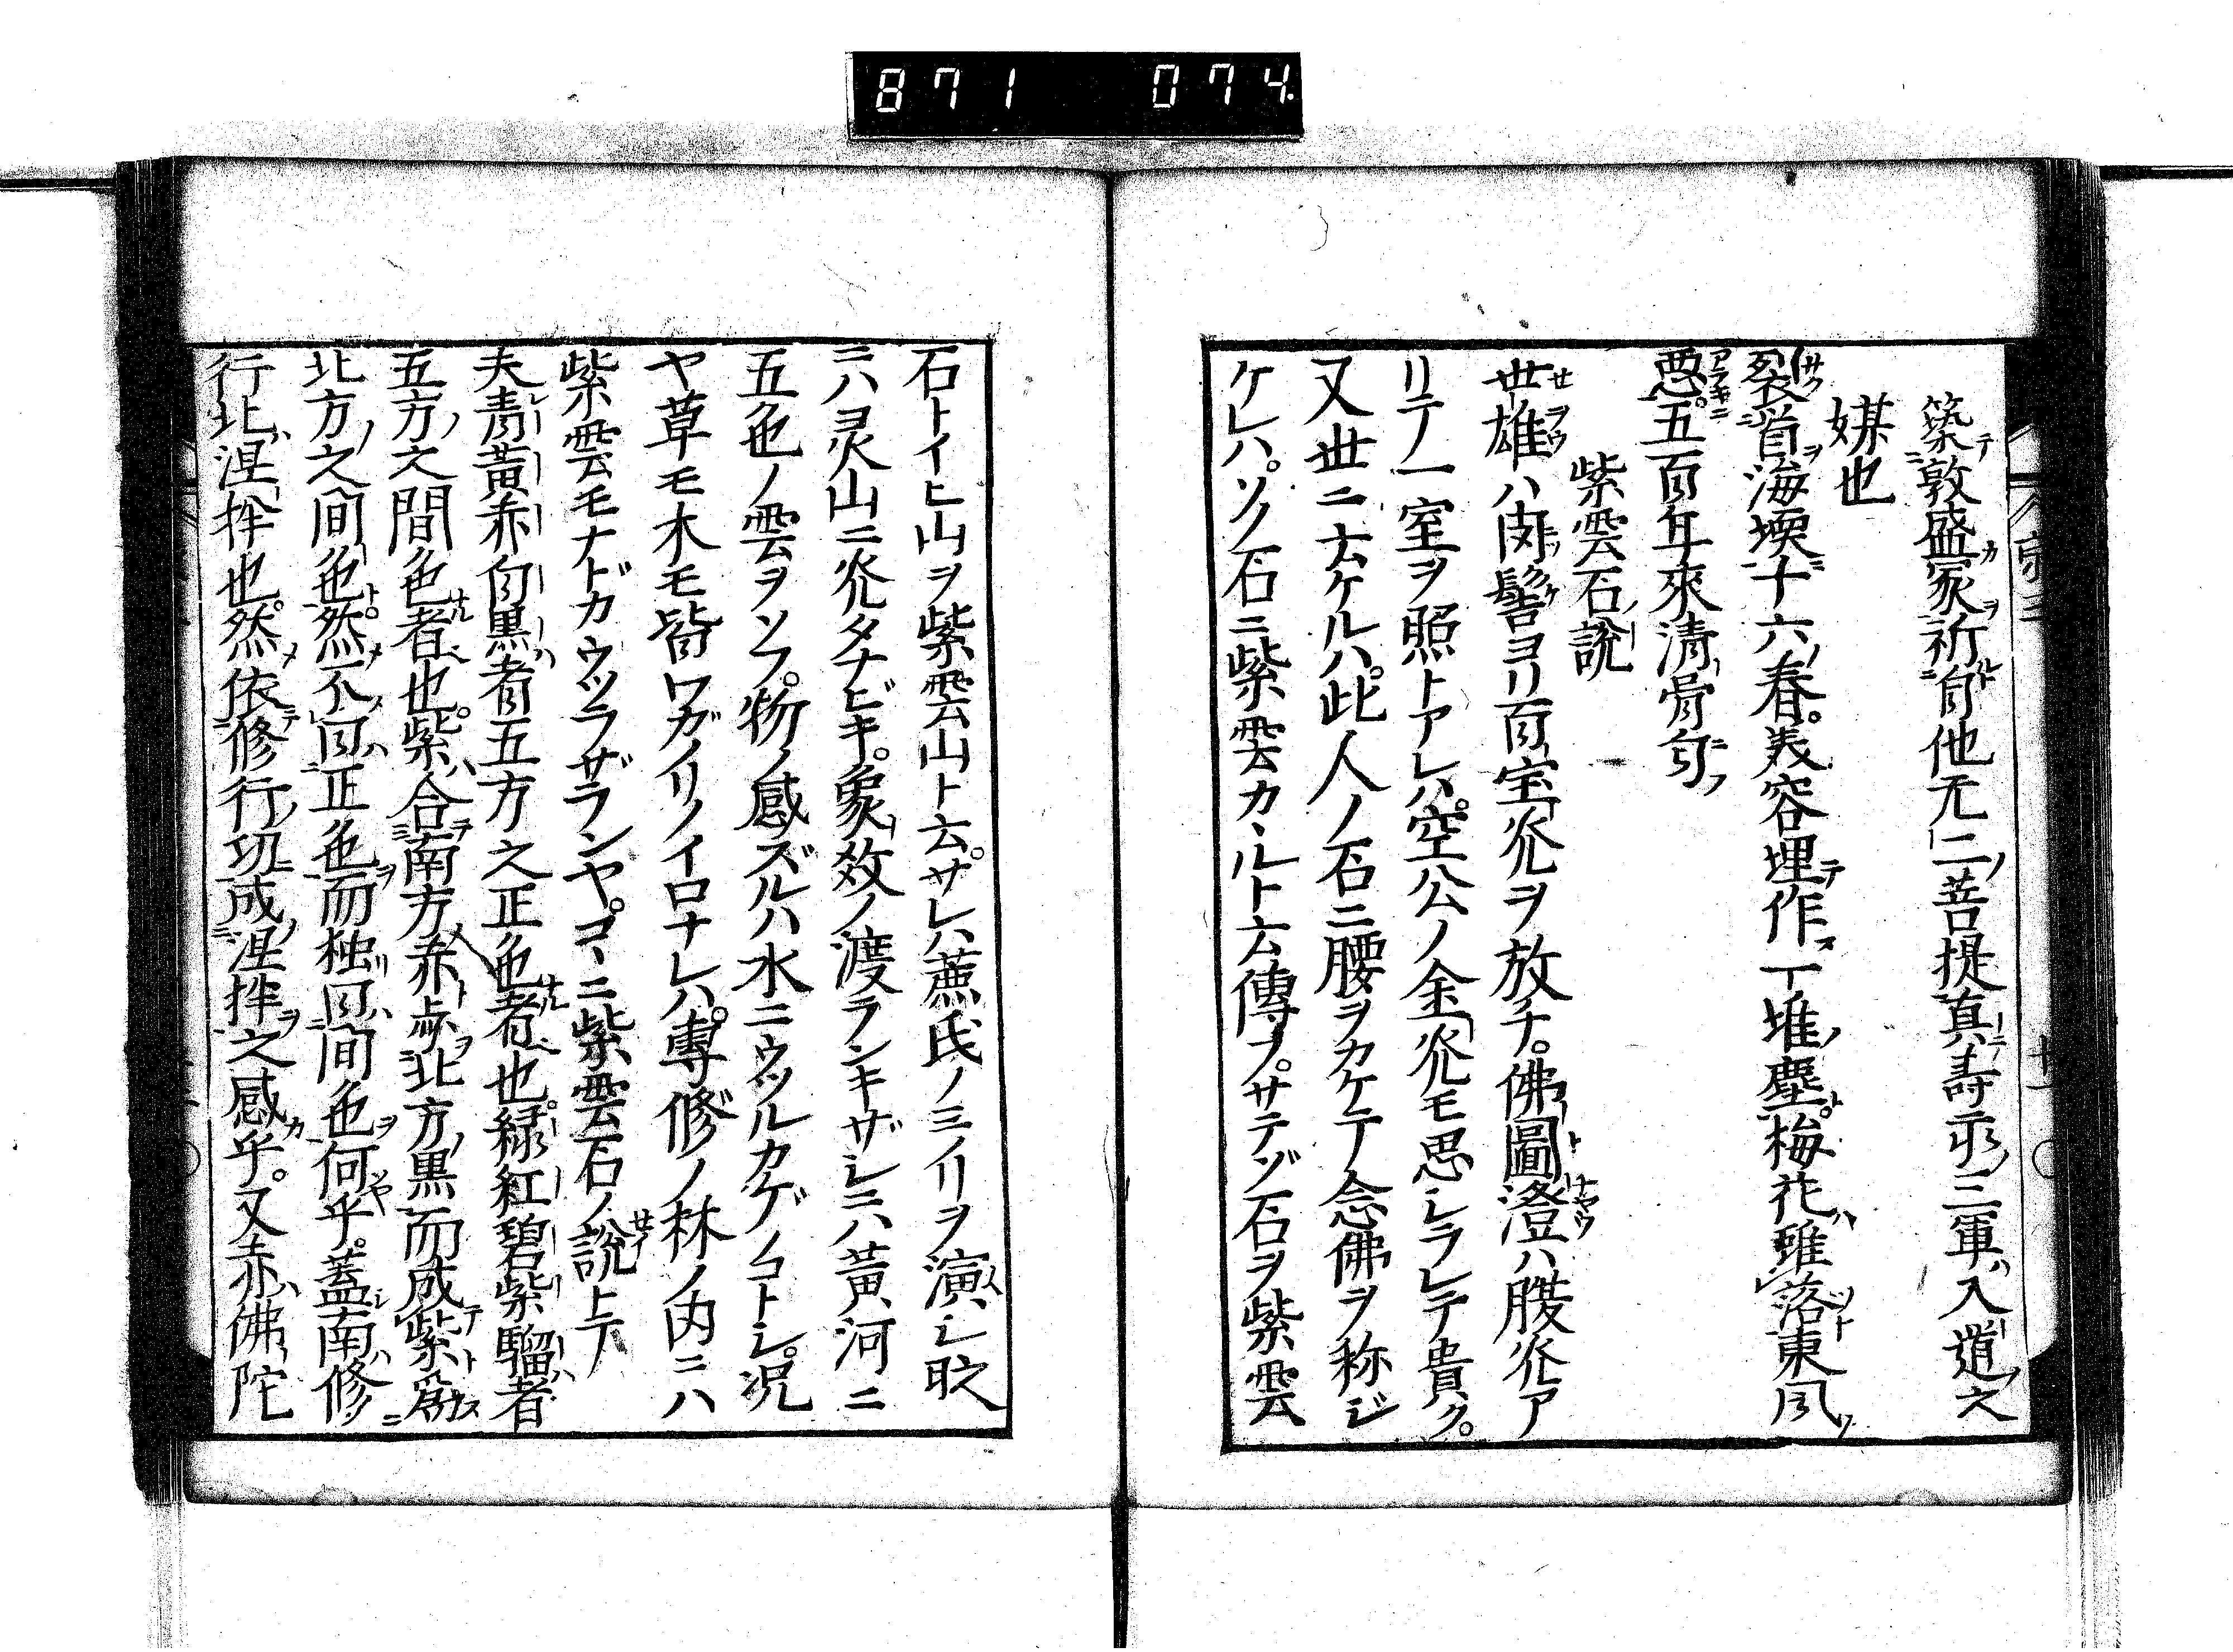 871 074
築敦盛冢祈自他无二菩提真壽示三軍入道之
媒也
裂首海壖十六春義容埋作一堆塵梅花雖落東風
悪五百年來清骨匂
紫雲石説
世雄ハ肉髻ヨリ百宝光ヲ放チ佛圖澄ハ腹光ア
リテ一室ヲ照トアレハ空公ノ金光モ思レラレテ貴ク
又世ニ去ケルハ此人ノ石ニ腰ヲカケテ念佛ヲ称ジ
ケレハソノ石ニ紫雲カヽルト云傳フサテゾ石ヲ紫雲
石トイヒ山ヲ紫雲山ト云サレハ蕉氏ノミノリヲ演シ
ニハ灵山ニ光タナビキ象教ノ渡ランキザシニハ黄河ニ
五色ノ雲ヲソフ物ノ感ズルハ水ニウツルカゲノコトシ况
ヤ草モ木モ皆ワガノリノイロナレハ専修ノ林ノ内ニハ
紫雲モナドカウツラザランヤコヽニ紫雲石ノ説上テ
夫青黄赤白黒者五方之正色者也緑紅碧紫騮者
五方之間色者也紫合南方赤與北方黒而成紫為
北方之間色然不同正色而独同間色何乎蓋南修
行北涅槃也然依修行功成涅槃之感乎又赤佛陀